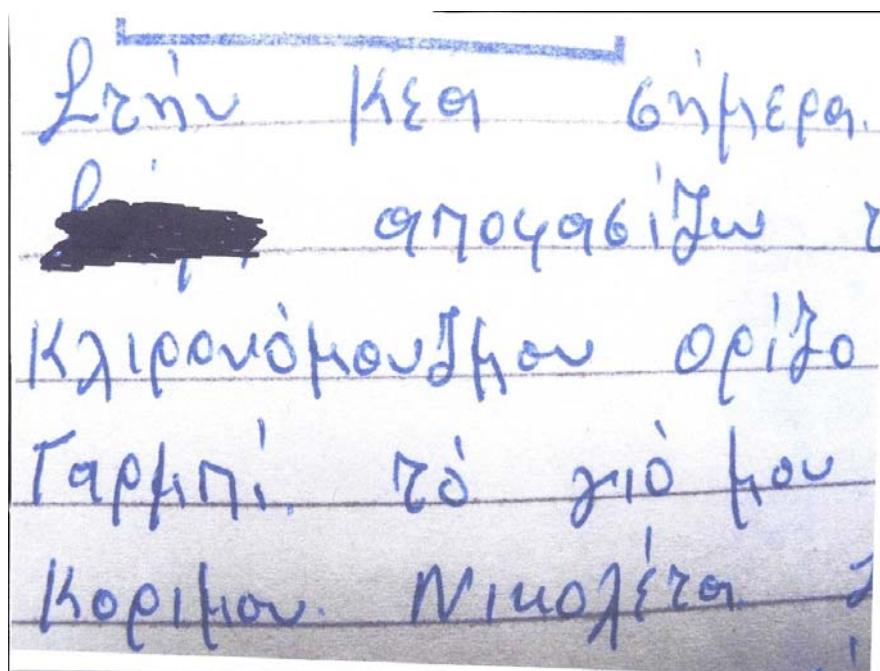 Στήν Κεα σήμερα.
αποφασίζω
Κλιρονόμουζμου ορίζο
Γαρμπί. τό γιό μου
Κοριμου. Νικολέτα